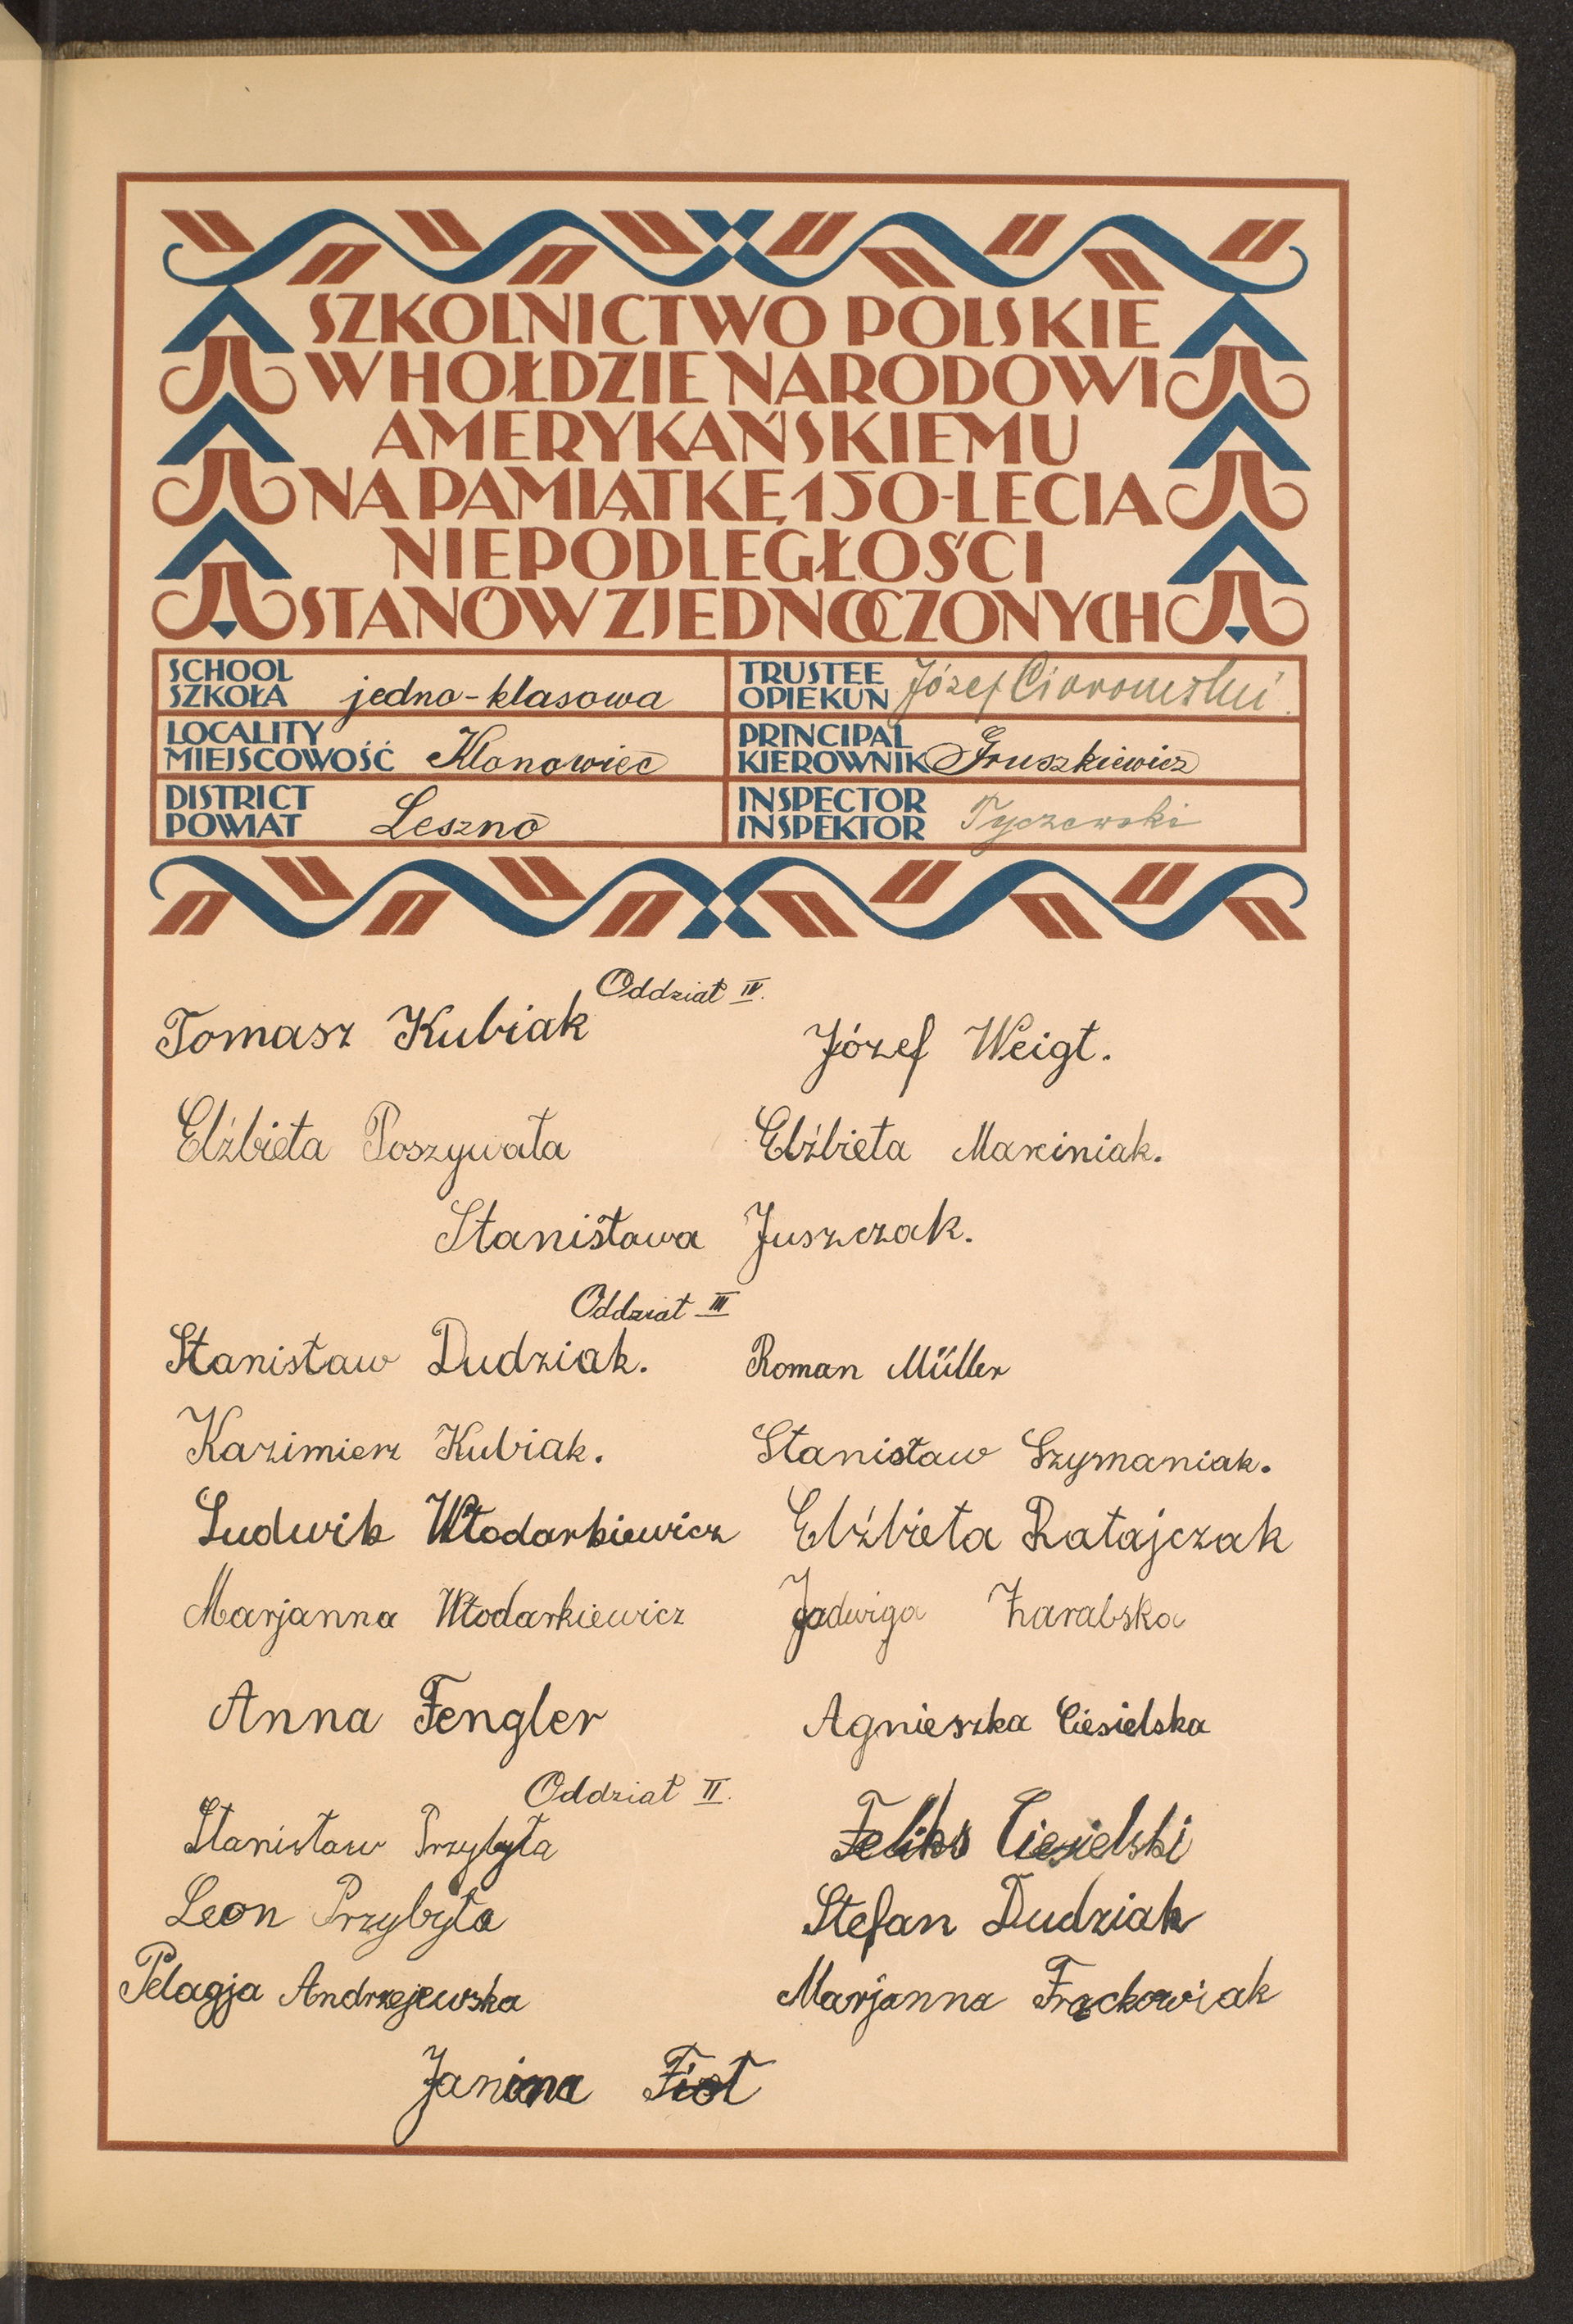 SZKOLNICTWO POLSKIE
W HOŁDZIE NARODOWI
AMERYKAŃSKIEMU
NA PAMIĄTKĘ 150-LECIA
NIEPODLEGŁOŚCI
STANÓW ZJEDNOCZONYCH
SCHOOL
SZKOŁA jedno-klasowa
TRUSTEE
OPIEKUN Józef
LOCALITY
MIEJSCOWOŚĆ Klonowiec
PRINCIPAL
KIEROWNIK Gruszkiewicz
DISTRICT
POWIAT Leszno
INSPECTOR
INSPEKTOR Tyczewski
Oddział IV.
Tomasz Kubiak Józef Weigt.
Elżbieta Poszywała Elżbieta Marciniak.
Stanisława Juszczak.
Oddział III
Stanisław Dudziak. Roman Müller
Kazimierz Kubiak. Stanisław Szymaniak.
Ludwik Włodarkiewicz Elżbieta Ratajczak
Marjanna Włodarkiewicz Jadwiga Żarabska
Anna Fengler Agnieszka Ciesielska
Oddział II.
Stanisław Przybyła Feliks Ciesielski
Leon Przybyła Stefan Dudziak
Pelagja Andrzejewska Marjanna Frąckowiak
Janina